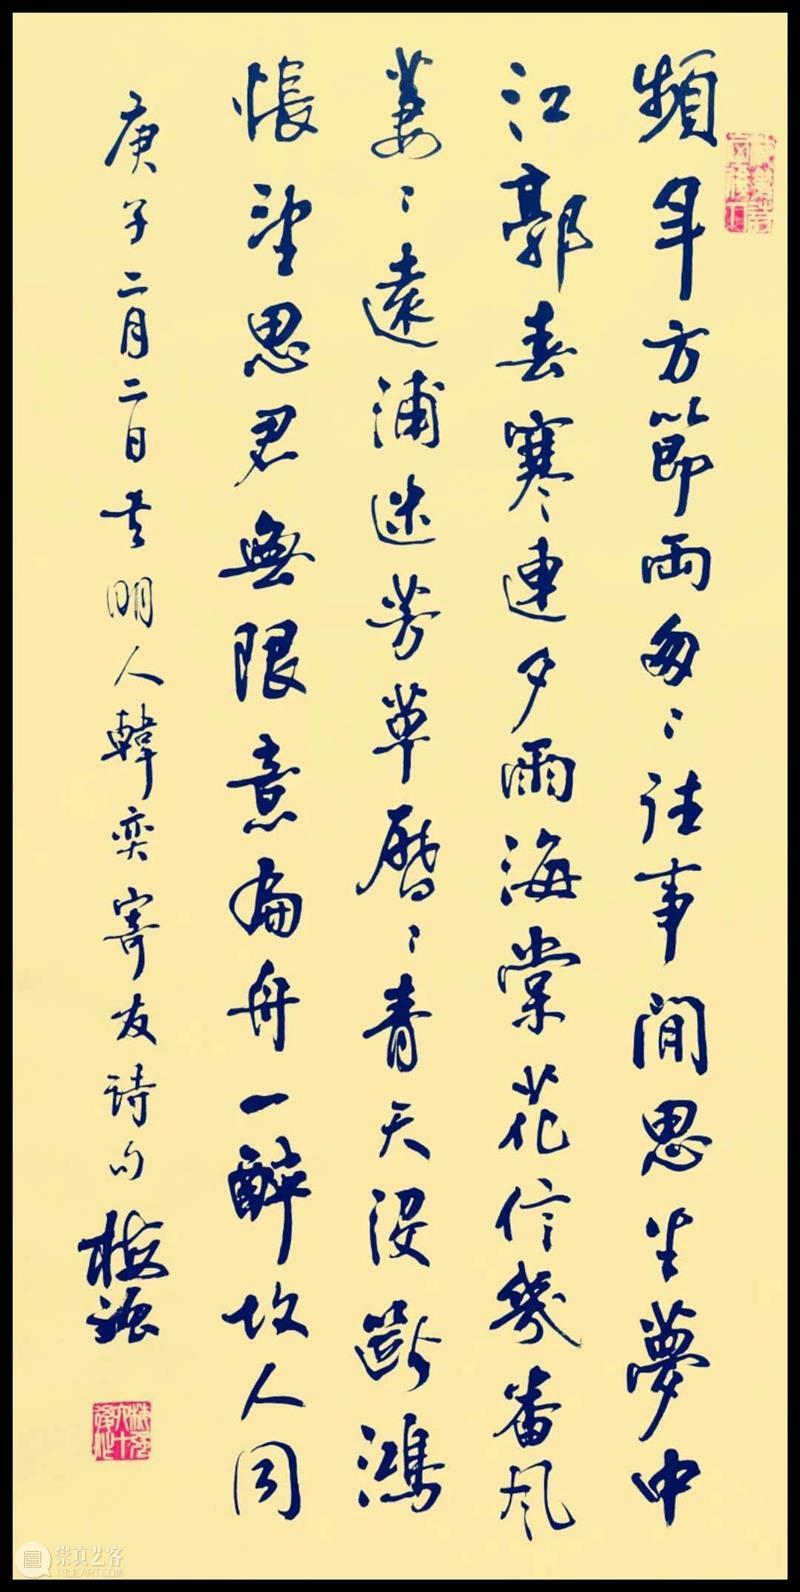 頻年方節兩匆〻往事閒思半夢中
江郭春寒連夕雨海棠花信幾番風
萋〻遠浦迷芳草歷〻青天沒斷鴻
悵望思君無限意扁舟一醉故人同
庚子二月二日書明人韓奕寄友詩句 梅強
崇真艺客
TRUEART.COM